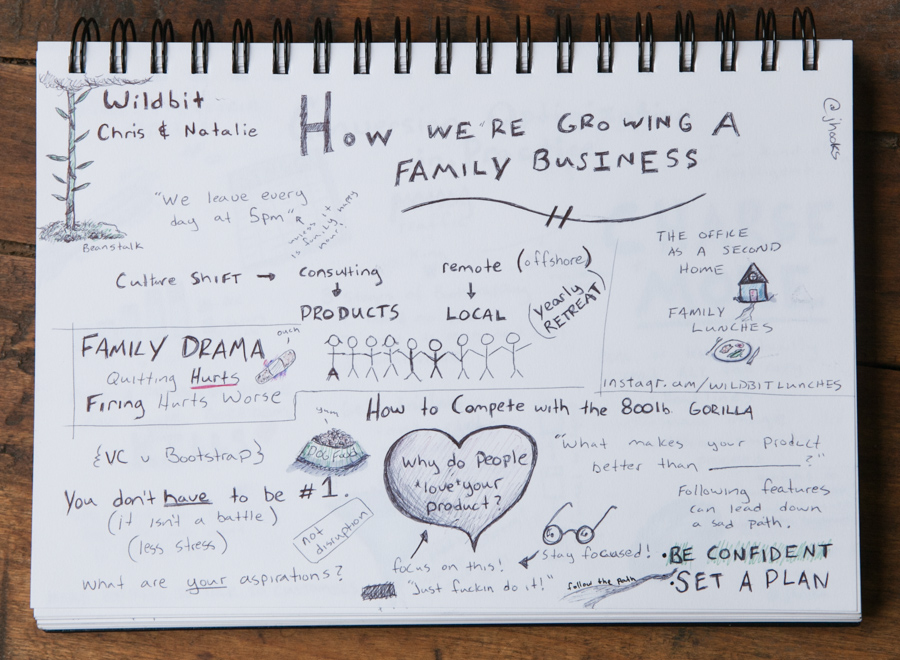 Wildbit
Chris & Natalie
HOW WE'RE GROWING A
FAMILY BUSINESS
@jhooks
"We leave every
day at 5pm"
unless it
is family happy
hour!
Beanstalk
Culture SHIFT → consulting
PRODUCTS
remote (offshore)
LOCAL
(yearly
RETREAT)
THE OFFICE
AS A SECOND
HOME
FAMILY
LUNCHES
instagr.am/WILDBITLUNCHES
FAMILY DRAMA
ouch
Quitting Hurts
Firing Hurts Worse
How to Compete with the 800lb GORILLA
{VC v Bootstrap}
yum
DOG Food
You don't have to be #1.
(it isn't a battle)
(less stress)
not
disruption
what are your aspirations?
why do People
*love*your
product?
focus on this!
"Just fuckin do it!"
"What makes your product
better than ____________?"
Following features
can lead down
a sad path.
Stay focused!
follow the path
•BE CONFIDENT
•SET A PLAN